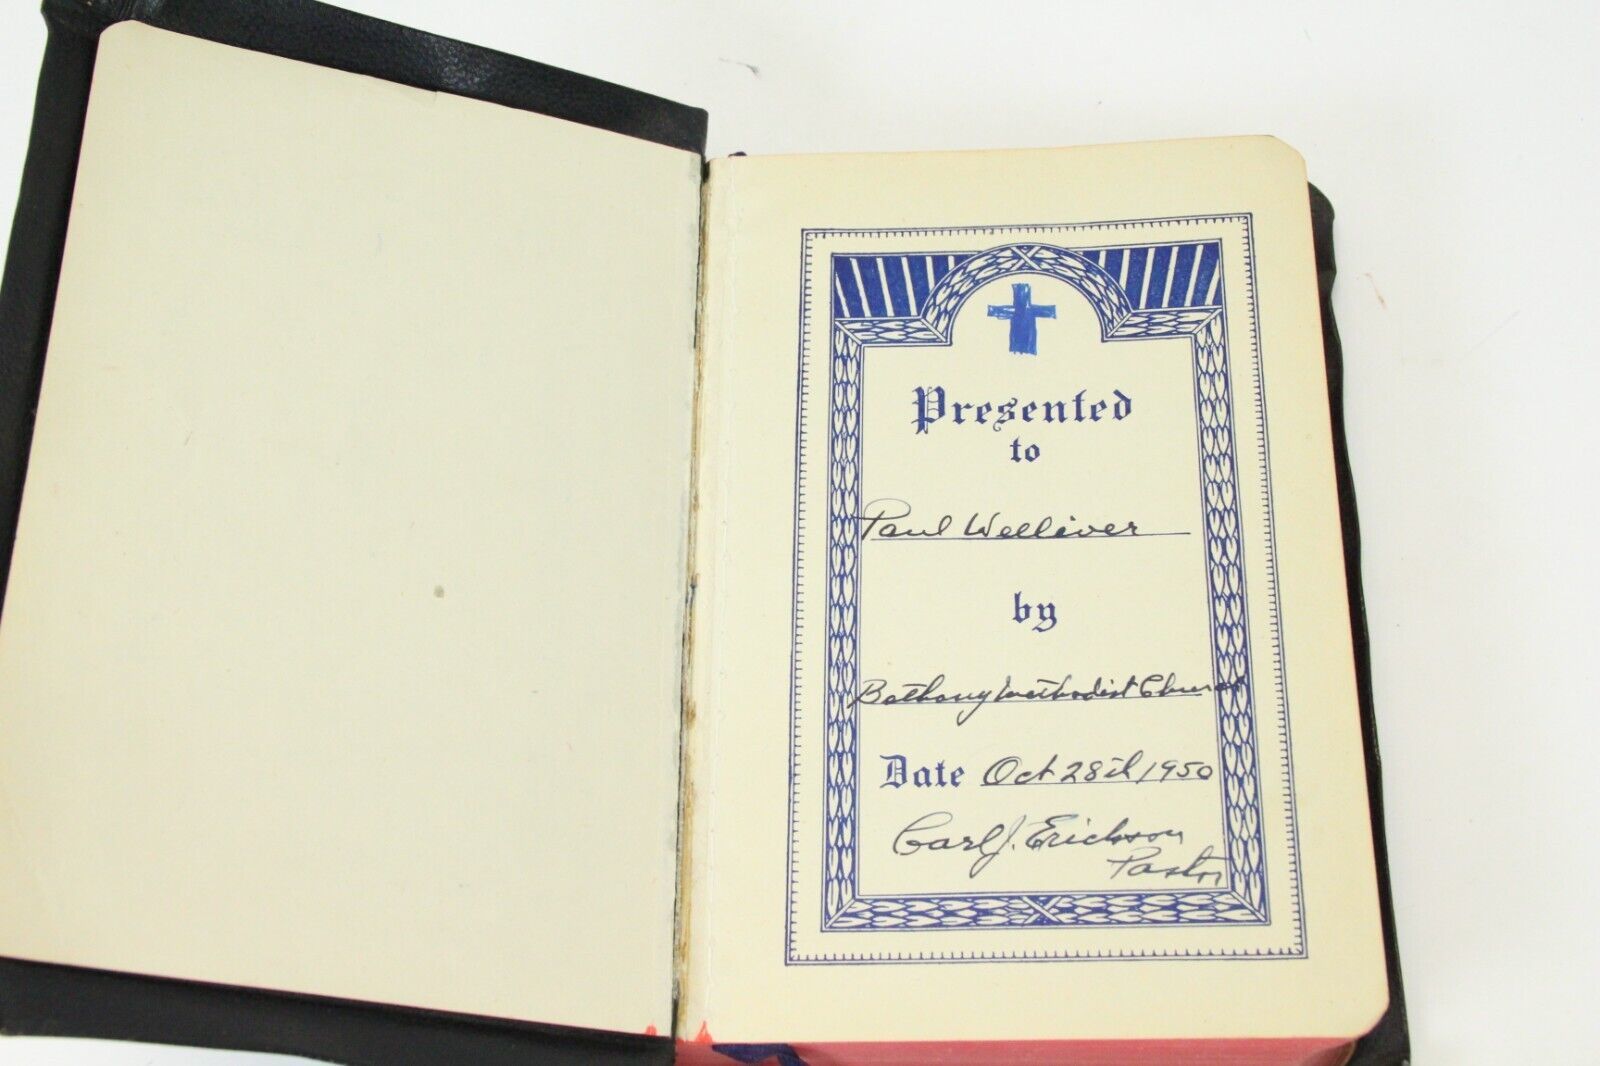 Presented
to
Paul Welliver
by
Bethany Methodist Church
Date Oct 28th 1950
Carl J. Erickson
Pastor